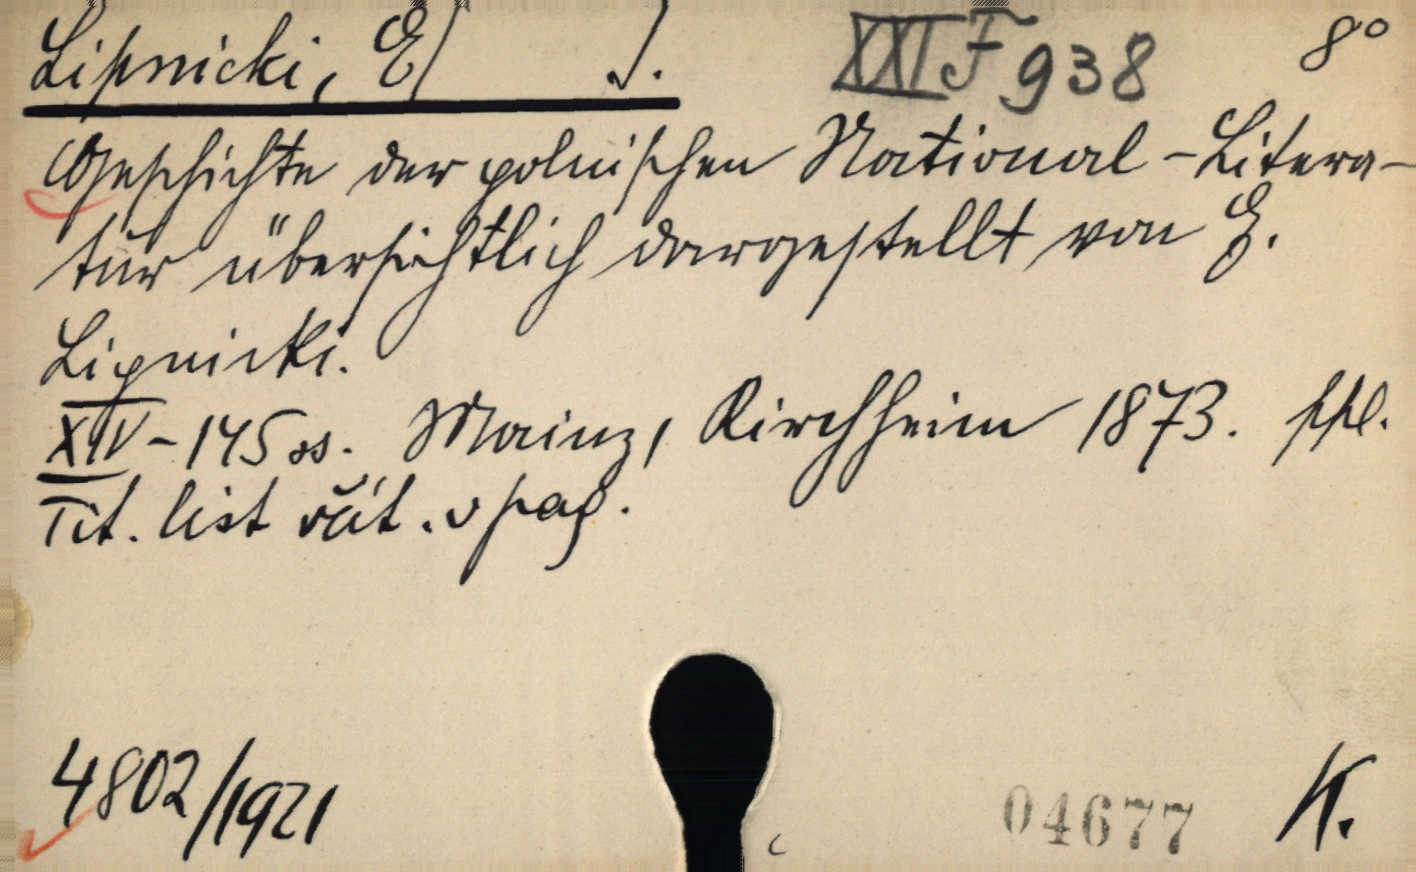 Lipnicki, E) J. XXI F 938 8°
Geschichte der polnischen National-Litera-
tur übersichtlich dargestellt von E.
Lipnicki.
XIV-145 ss. Mainz, Kirchheim 1873. ppl.
Tit. list včít. v pag.
4802/1921
04677 K.